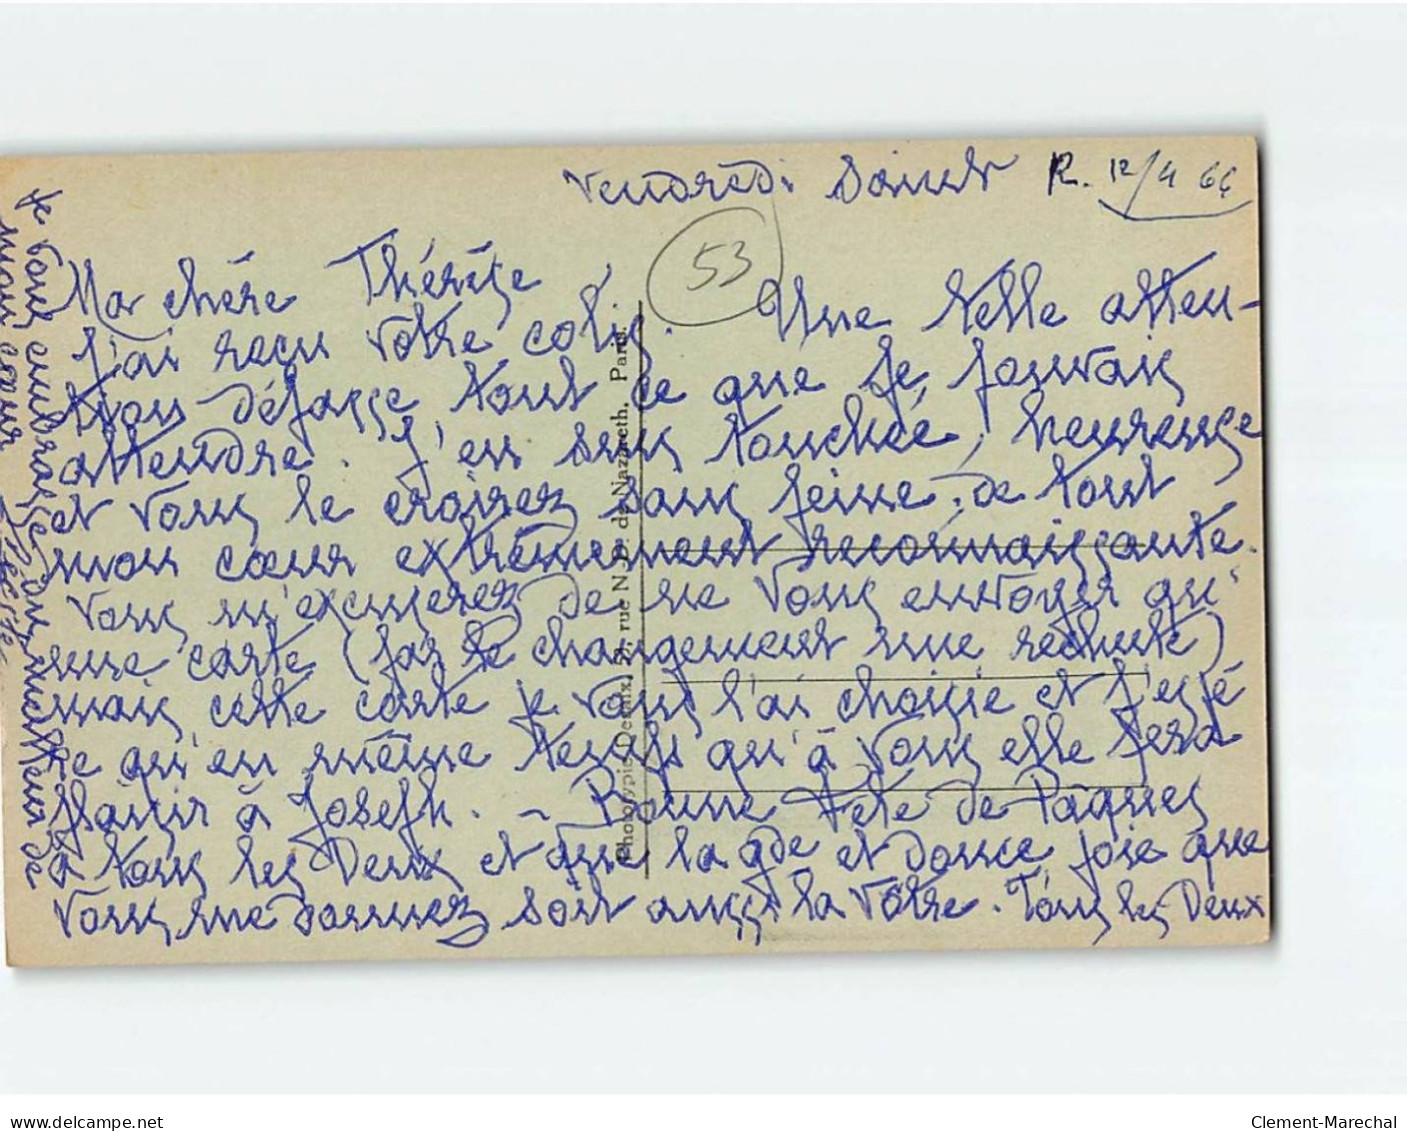 Vendredi Saint R. 12/4 66
53
Ma chère Thérèse
J'ai reçu votre colis. Une telle atten-
tion dépasse tout ce que je pouvais
attendre. J'en suis touchée, heureuse
et vous le croirez sans peine, de tout
mon cœur extrêmement reconnaissante.
Vous m'excuserez de ne vous envoyer qu'
une carte (par le changement une rechute)
mais cette carte je vous l'ai choisie et j'espè
re qu'en même temps qu'à vous elle fera
plaisir à Joseph. - Bonne fête de Pâques
à tous les deux et que la gde et douce joie que
vous me donnez soit aussi la vôtre. Tous les deux
Je vous embrasse du meilleur de
mon cœur
Phototypie Desaix, rue N. D. de Nazareth. Paris.
www.delcampe.net
Clement-Marechal